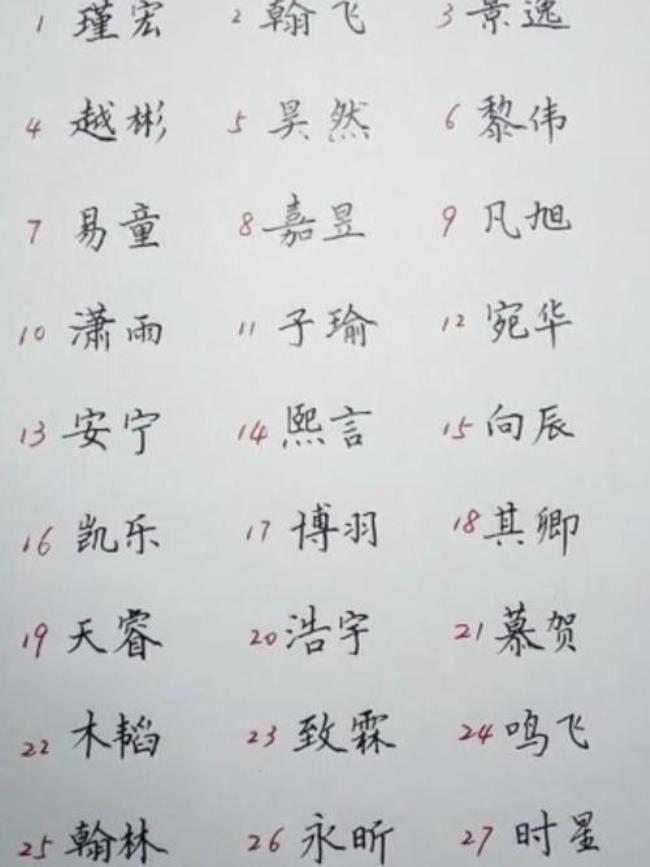 1 瑾宏 2 翰飞 3 景逸
4 越彬 5 昊然 6 黎伟
7 易童 8 嘉昱 9 凡旭
10 潇雨 11 子瑜 12 宛华
13 安宁 14 熙言 15 向辰
16 凯乐 17 博羽 18 其卿
19 天睿 20 浩宇 21 慕贺
22 木韬 23 致霖 24 鸣飞
25 翰林 26 永昕 27 时星